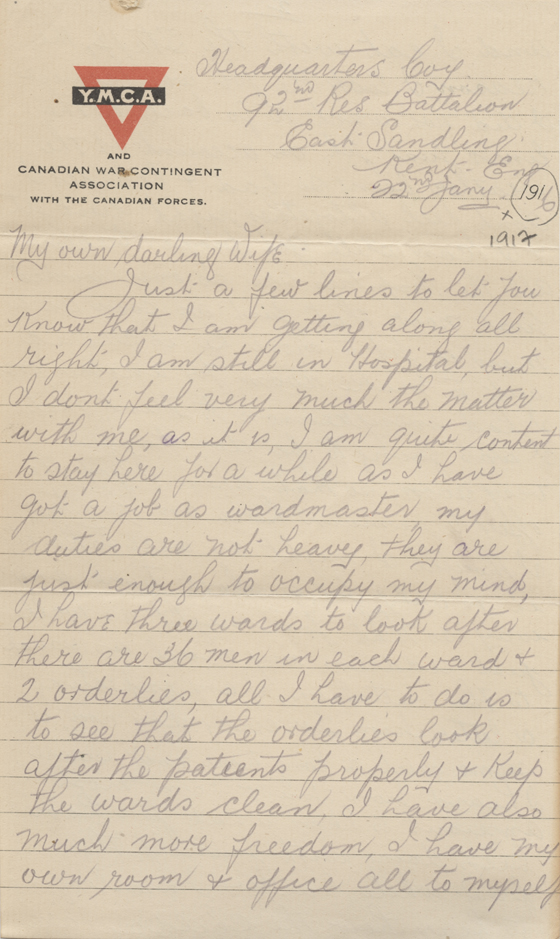 Y.M.C.A.
AND
CANADIAN WAR CONTINGENT
ASSOCIATION
WITH THE CANADIAN FORCES.
Headquarters Coy
92nd Res Battalion
East Sandling
Kent. Eng
22nd Jany 1916
x
1917
My own darling Wife
Just a few lines to let you
Know that I am getting along all
right, I am still in Hospital, but
I dont feel very much the matter
with me, as it is, I am quite content
to stay here for a while as I have
got a job as wardmaster, my
duties are not heavy, they are
just enough to occupy my mind,
I have three wards to look after
there are 36 men in each ward +
2 orderlies, all I have to do is
to see that the orderlies look
after the patients properly + Keep
the wards clean, I have also
much more freedom, I have my
own room + office all to myself